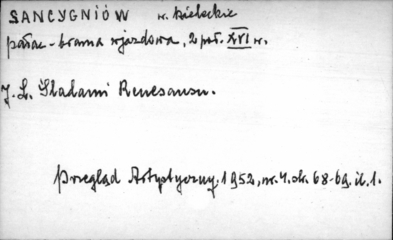 SANCYGNIÓW w. kieleckie
pałac-brama wjazdowa, 2 poł. XVI w.
J. L. Śladami Renesansu.
Przegląd Artystyczny. 1952, nr. 4. str. 68-69. il. 1.